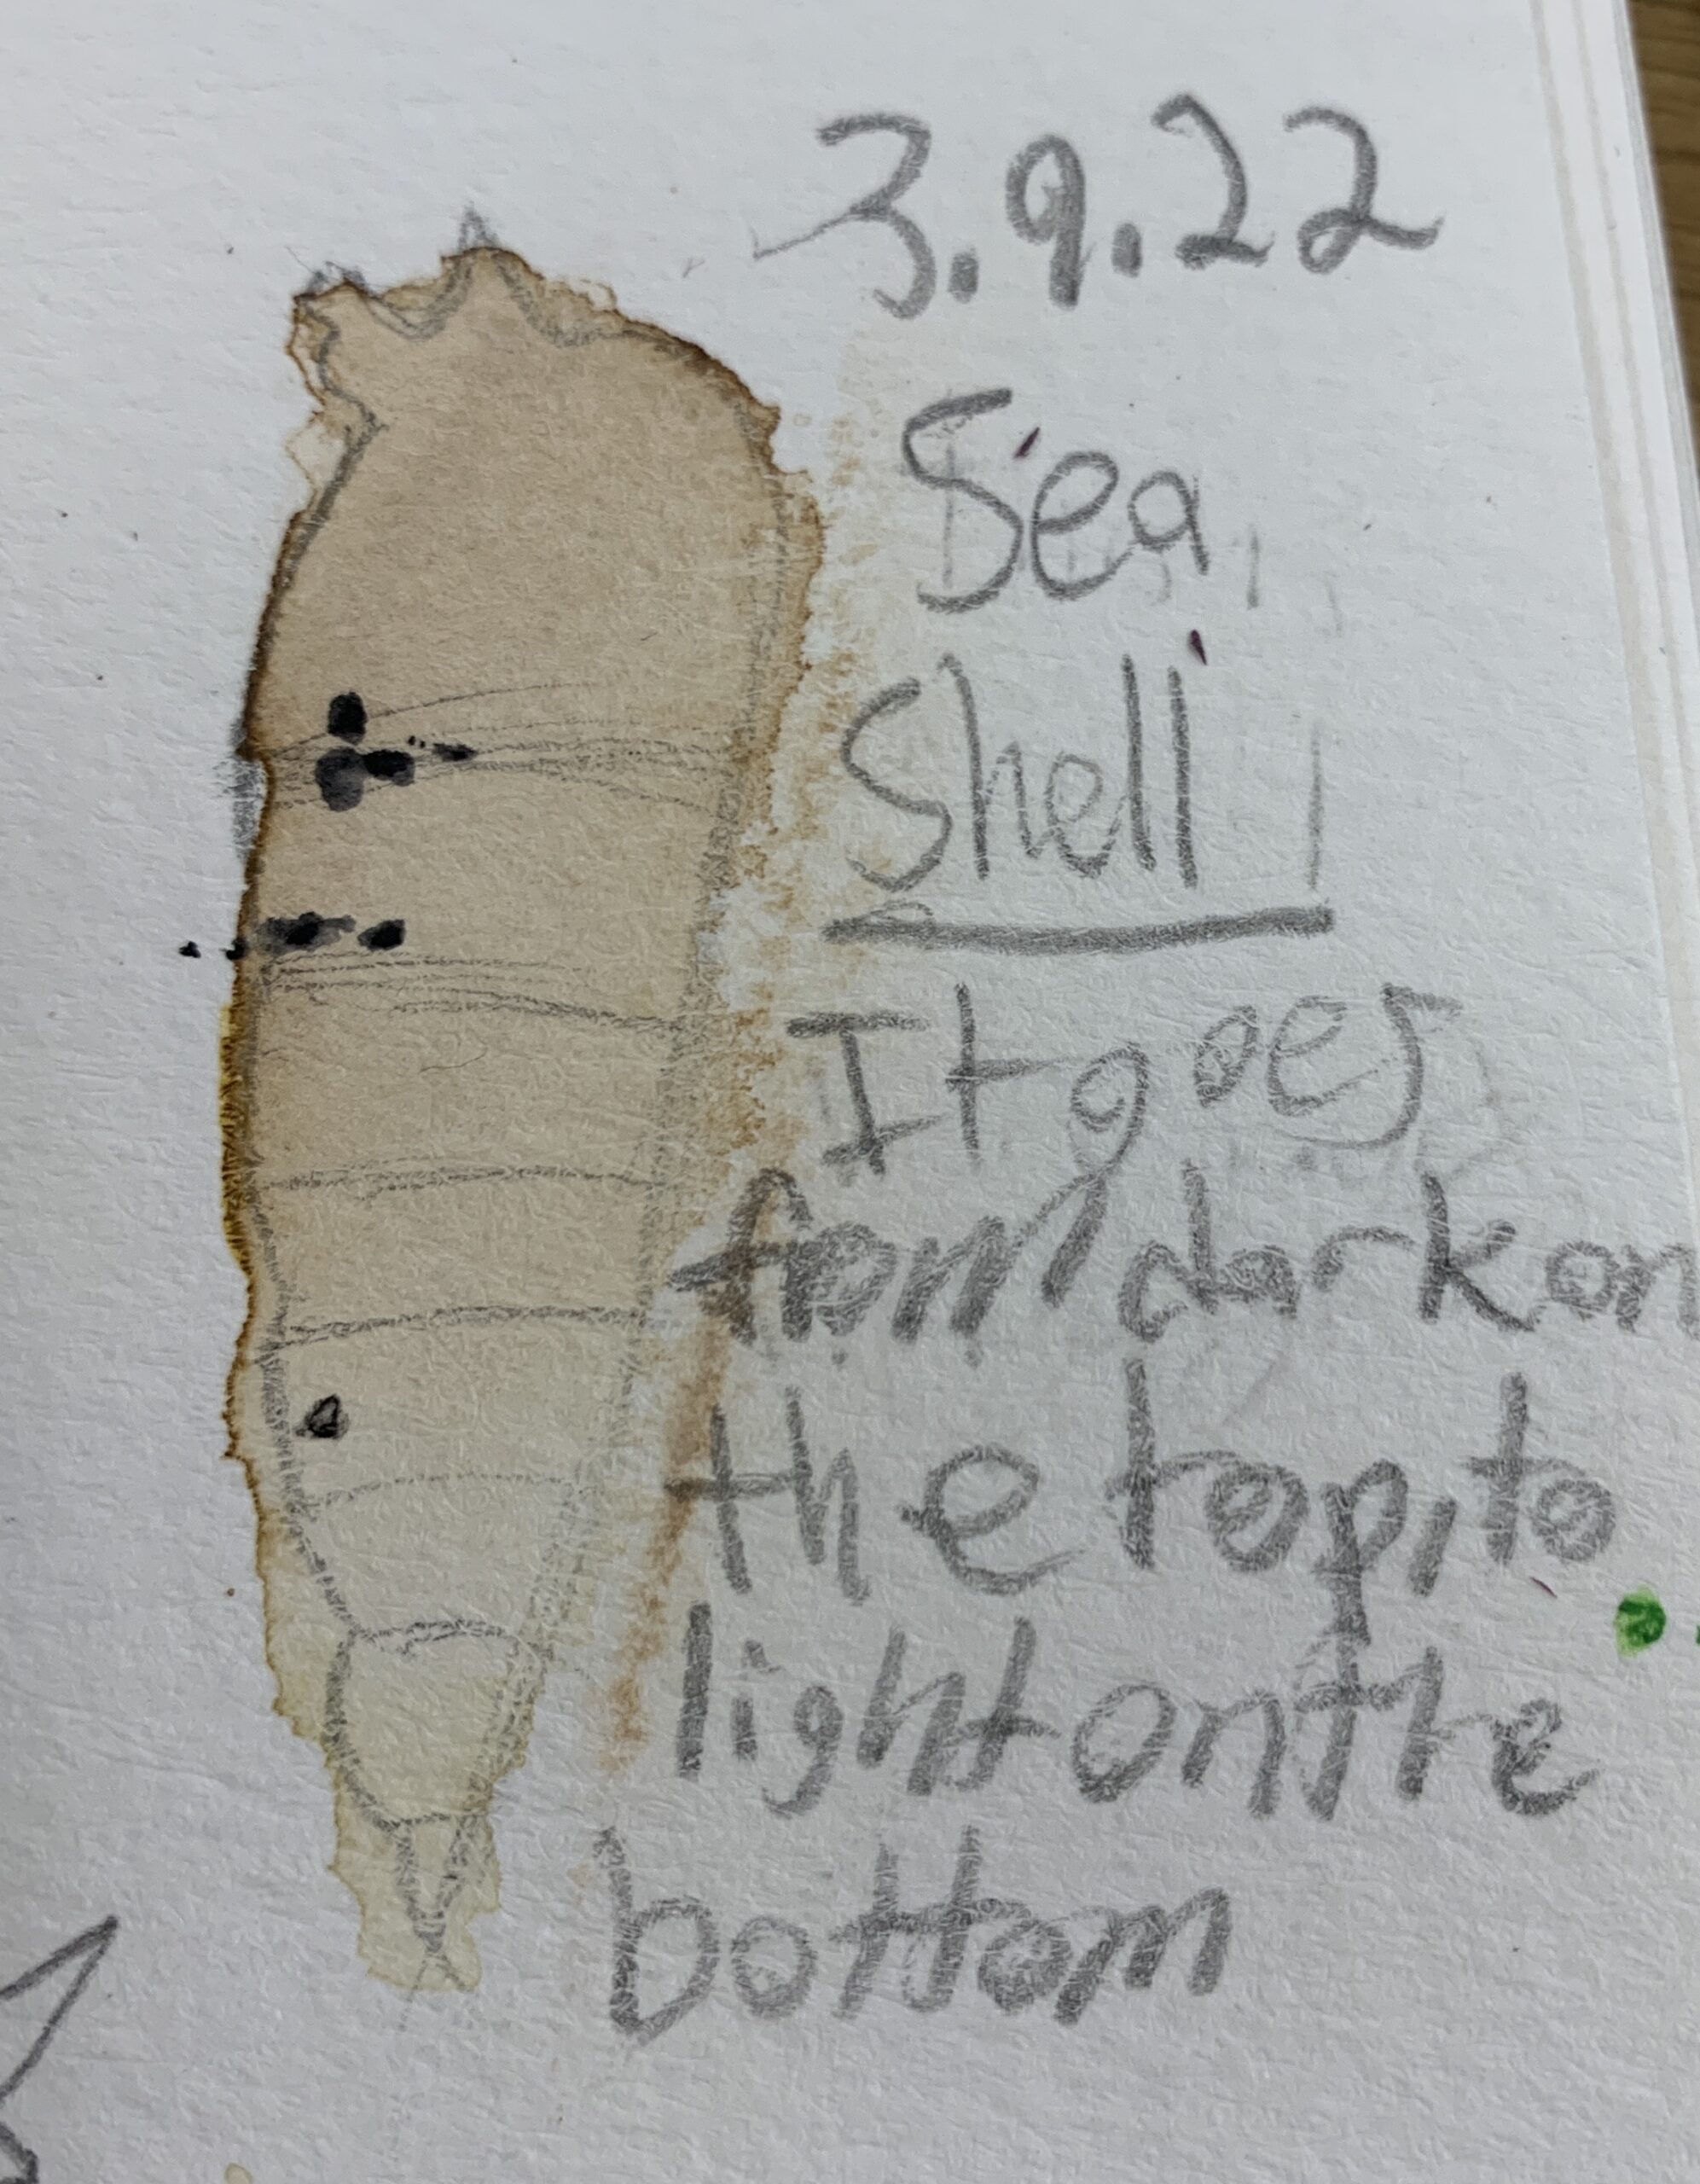 3.9.22
Sea
Shell
It goes
from dark on
the top, to
light on the
bottom